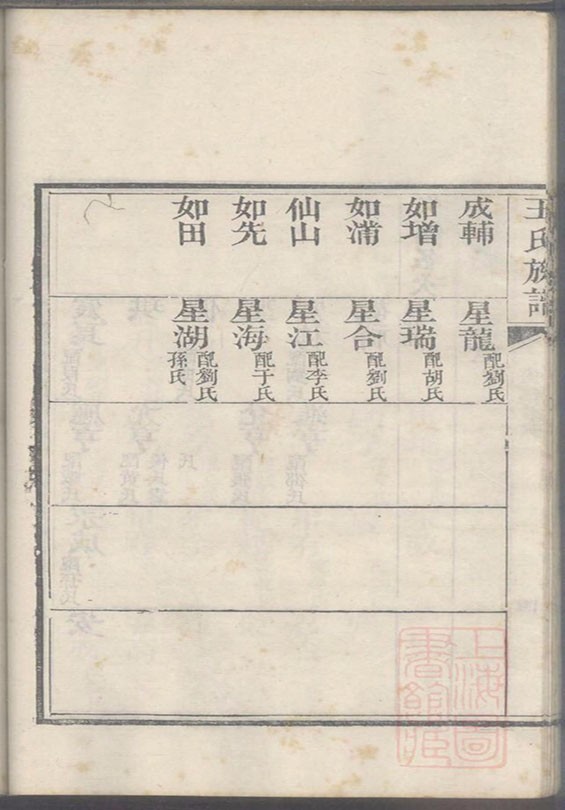 王氏族譜
成輔
如增
如浦
仙山
如先
如田
星龍 配劉氏
星瑞 配胡氏
星合 配劉氏
星江 配李氏
星海 配于氏
星湖 配劉氏
孫氏
上海圖
書館藏